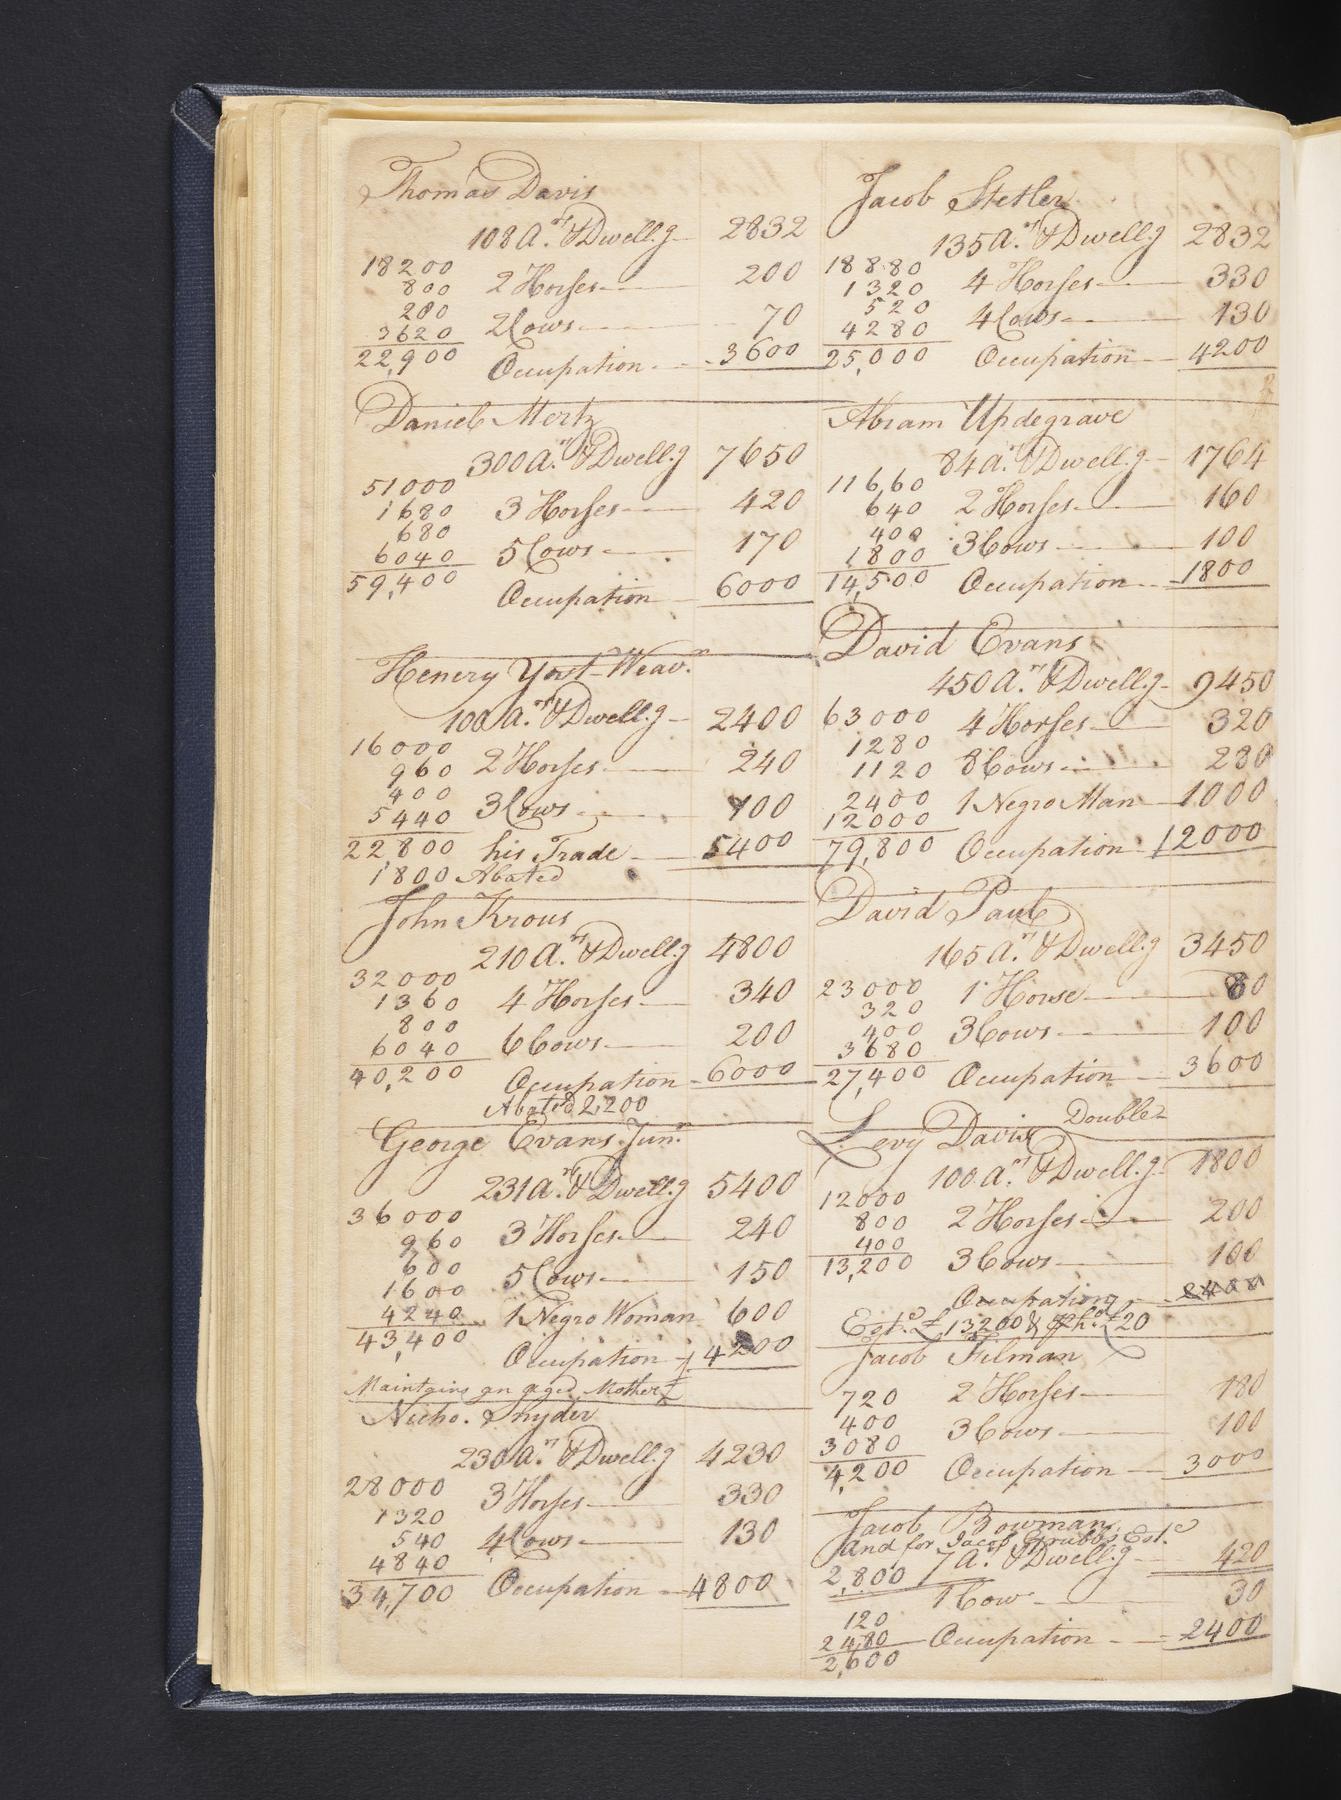 Thomas Davis
108 a.rs & Dwell.g 2832
18200
800 2 Horses 200
200
3620 2 Cows 70
22,900 Occupation 3600
Daniel Mertz
300 a.rs & Dwell.g 7650
51000
1680 3 Horses 420
680
6040 5 Cows 170
59,400 Occupation 6000
Henery Yost Weav.r
100 a.rs & Dwell.g 2400
16000
960 2 Horses 240
400
5440 3 Cows 100
22,800 his Trade 5400
1800 Abated
John Krous
210 a.rs & Dwell.g 4800
32000
1360 4 Horses 340
800
6040 6 Cows 200
40,200 Occupation 6000
Abated 2,200
George Evans Jun.r
231 a.rs & Dwell.g 5400
36000
960 3 Horses 240
600
1600 5 Cows 150
4240 1 Negro Woman 600
43,400 Occupation 4200
Maintains an aged Mother
Nicho. Snyder
230 a.rs & Dwell.g 4230
28000
1320 3 Horses 330
540
4840 4 Cows 130
34,700 Occupation 4800
Jacob Stetler
135 a.rs & Dwell.g 2832
18880
1320 4 Horses 330
520
4280 4 Cows 130
25,000 Occupation 4200
Abram Updegrave
84 a.rs & Dwell.g 1764
11660
640 2 Horses 160
400
1800 3 Cows 100
14,500 Occupation 1800
David Evans
450 a.rs & Dwell.g 9450
63000 4 Horses 320
1280
1120 8 Cows 280
2400 1 Negro Man 1000
12000
79,800 Occupation 12000
David Paul
165 a.rs & Dwell.g 3450
23000 1 Horse 80
320
400 3 Cows 100
3680
27,400 Occupation 3600
Levy Davis Double
100 a.rs & Dwell.g 1800
12000
800 2 Horses 200
400
13,200 3 Cows 100
Occupation 2400
Est.d £13200 &
£20
Jacob Hilman
720 2 Horses 180
400 3 Cows 100
3080
4,200 Occupation 3000
Jacob Bowman
and for Jacob Grubbs Est.e
7 a. & Dwell.g 420
2,800
1 Cow 30
120
2480 Occupation 2400
2,600